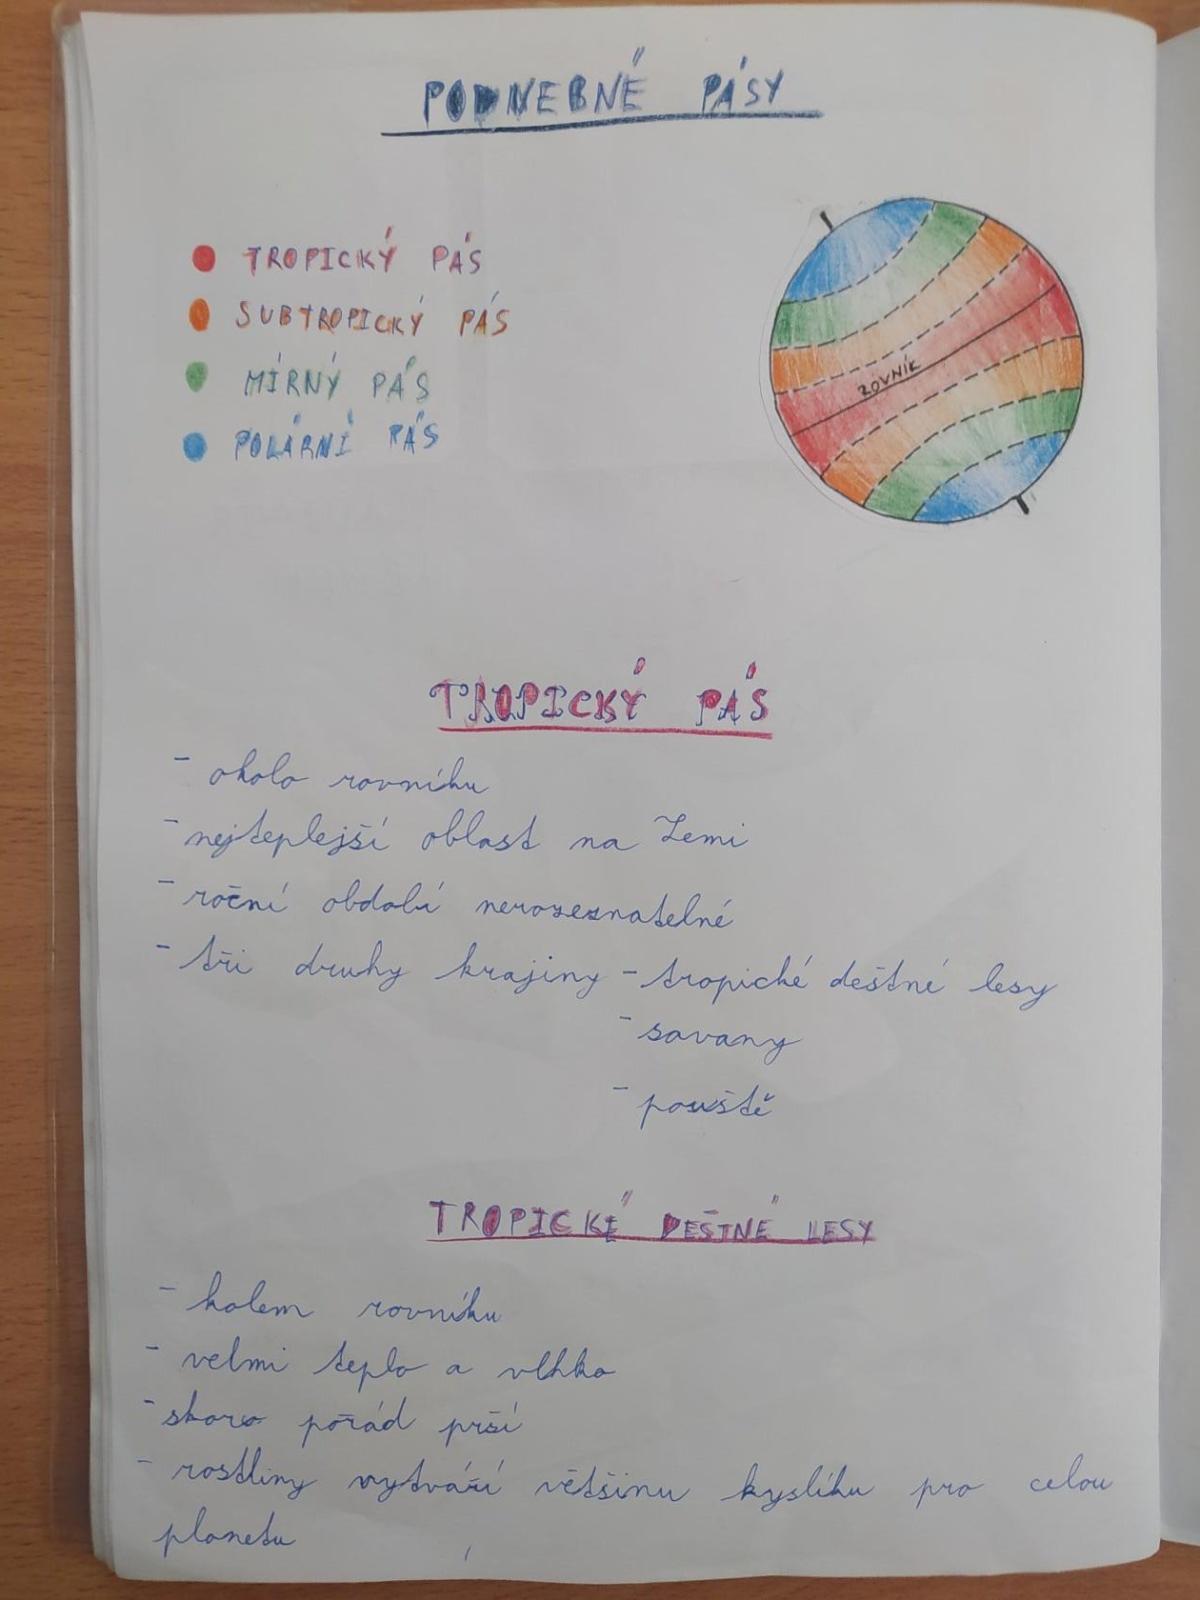 PODNEBNÉ PÁSY
TROPICKÝ PÁS
SUBTROPICKÝ PÁS
MÍRNÝ PÁS
POLÁRNÍ PÁS
ROVNÍK
TROPICKÝ PÁS
- okolo rovníku
- nejteplejší oblast na Zemi
- roční období nerozeznatelné
- tři druhy krajiny - tropické deštné lesy
- savany
- pouště
TROPICKÉ DEŠTNÉ LESY
- kolem rovníku
- velmi teplo a vlhko
- skoro pořád prší
- rostliny vytváří většinu kyslíku pro celou
planetu